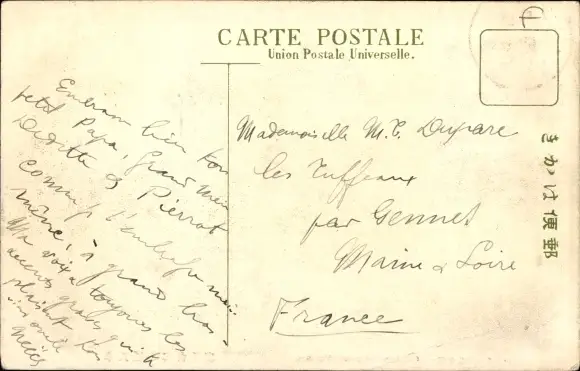 CARTE POSTALE
Union Postale Universelle.
きかは便郵
Embrasse bien ton
petit Papa, Grand'mère
Dédette & Pierrot
comme je t'embrasse moi-
même, à grands bras.
Ma voix a toujours les
accents graves qui te
plaisent
Mademoiselle M. T. Dupare
les Tuffeaux
par Gennes
Maine & Loire
France